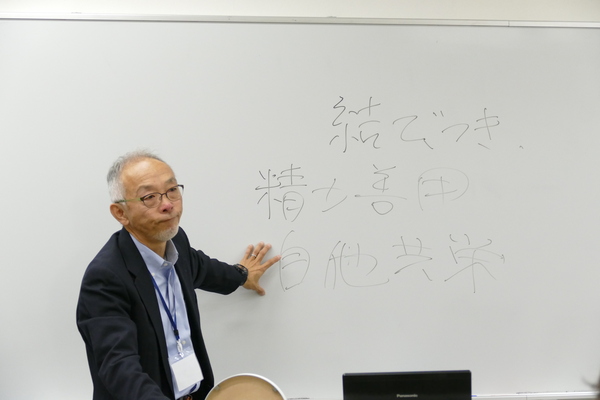 結びつき、
精力善用
自他共栄
Panasonic